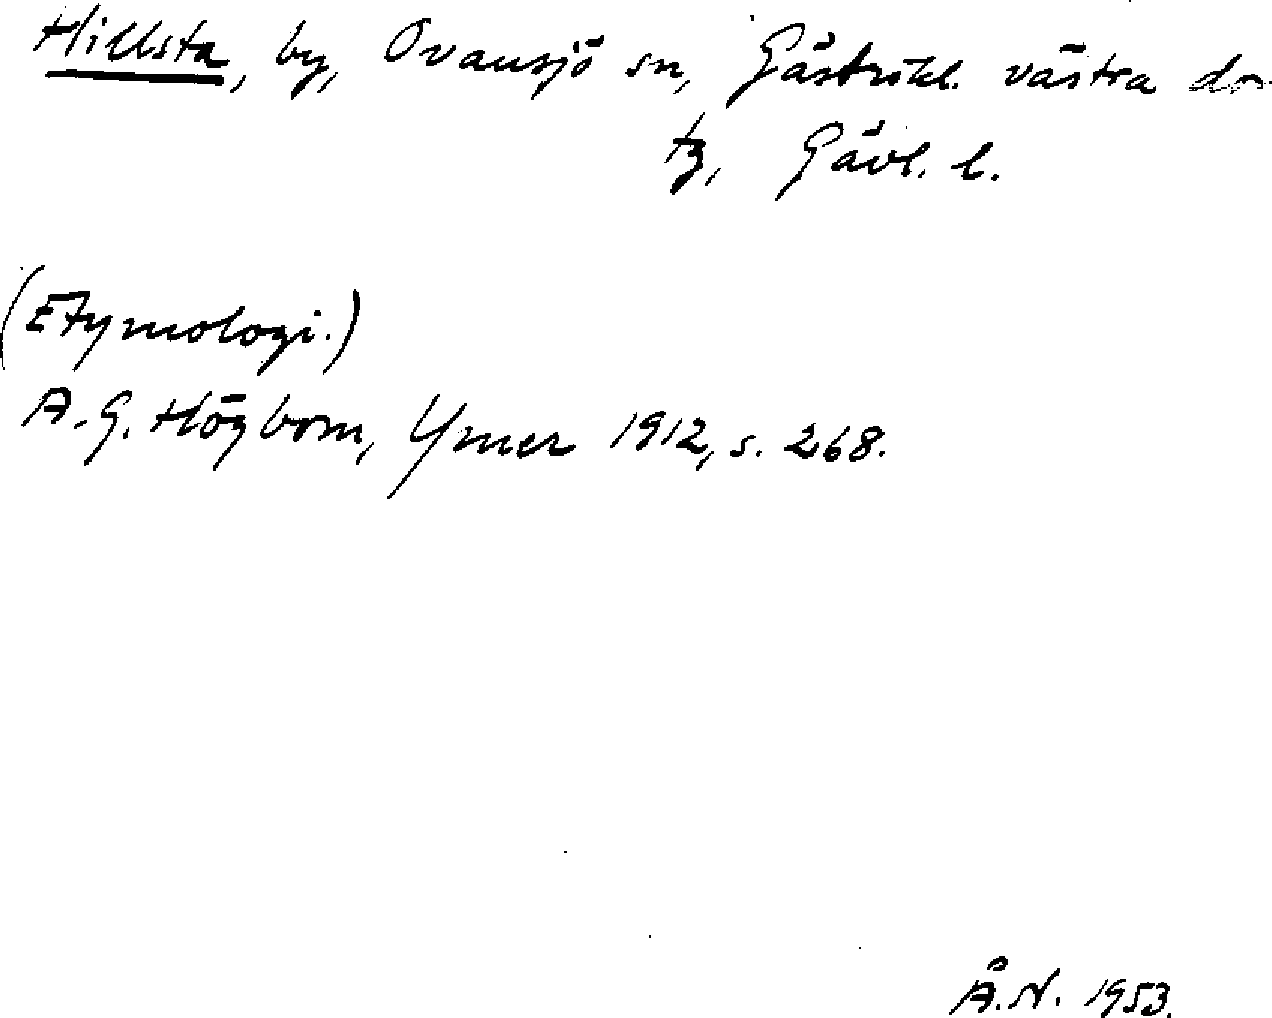 Hillsta, by, Ovansjö sn, Gästrikl. västra dom
tg, Gävl. l.
(Etymologi.)
A. G. Högbom, Ymer 1912, s. 268.
Å. N. 1953.